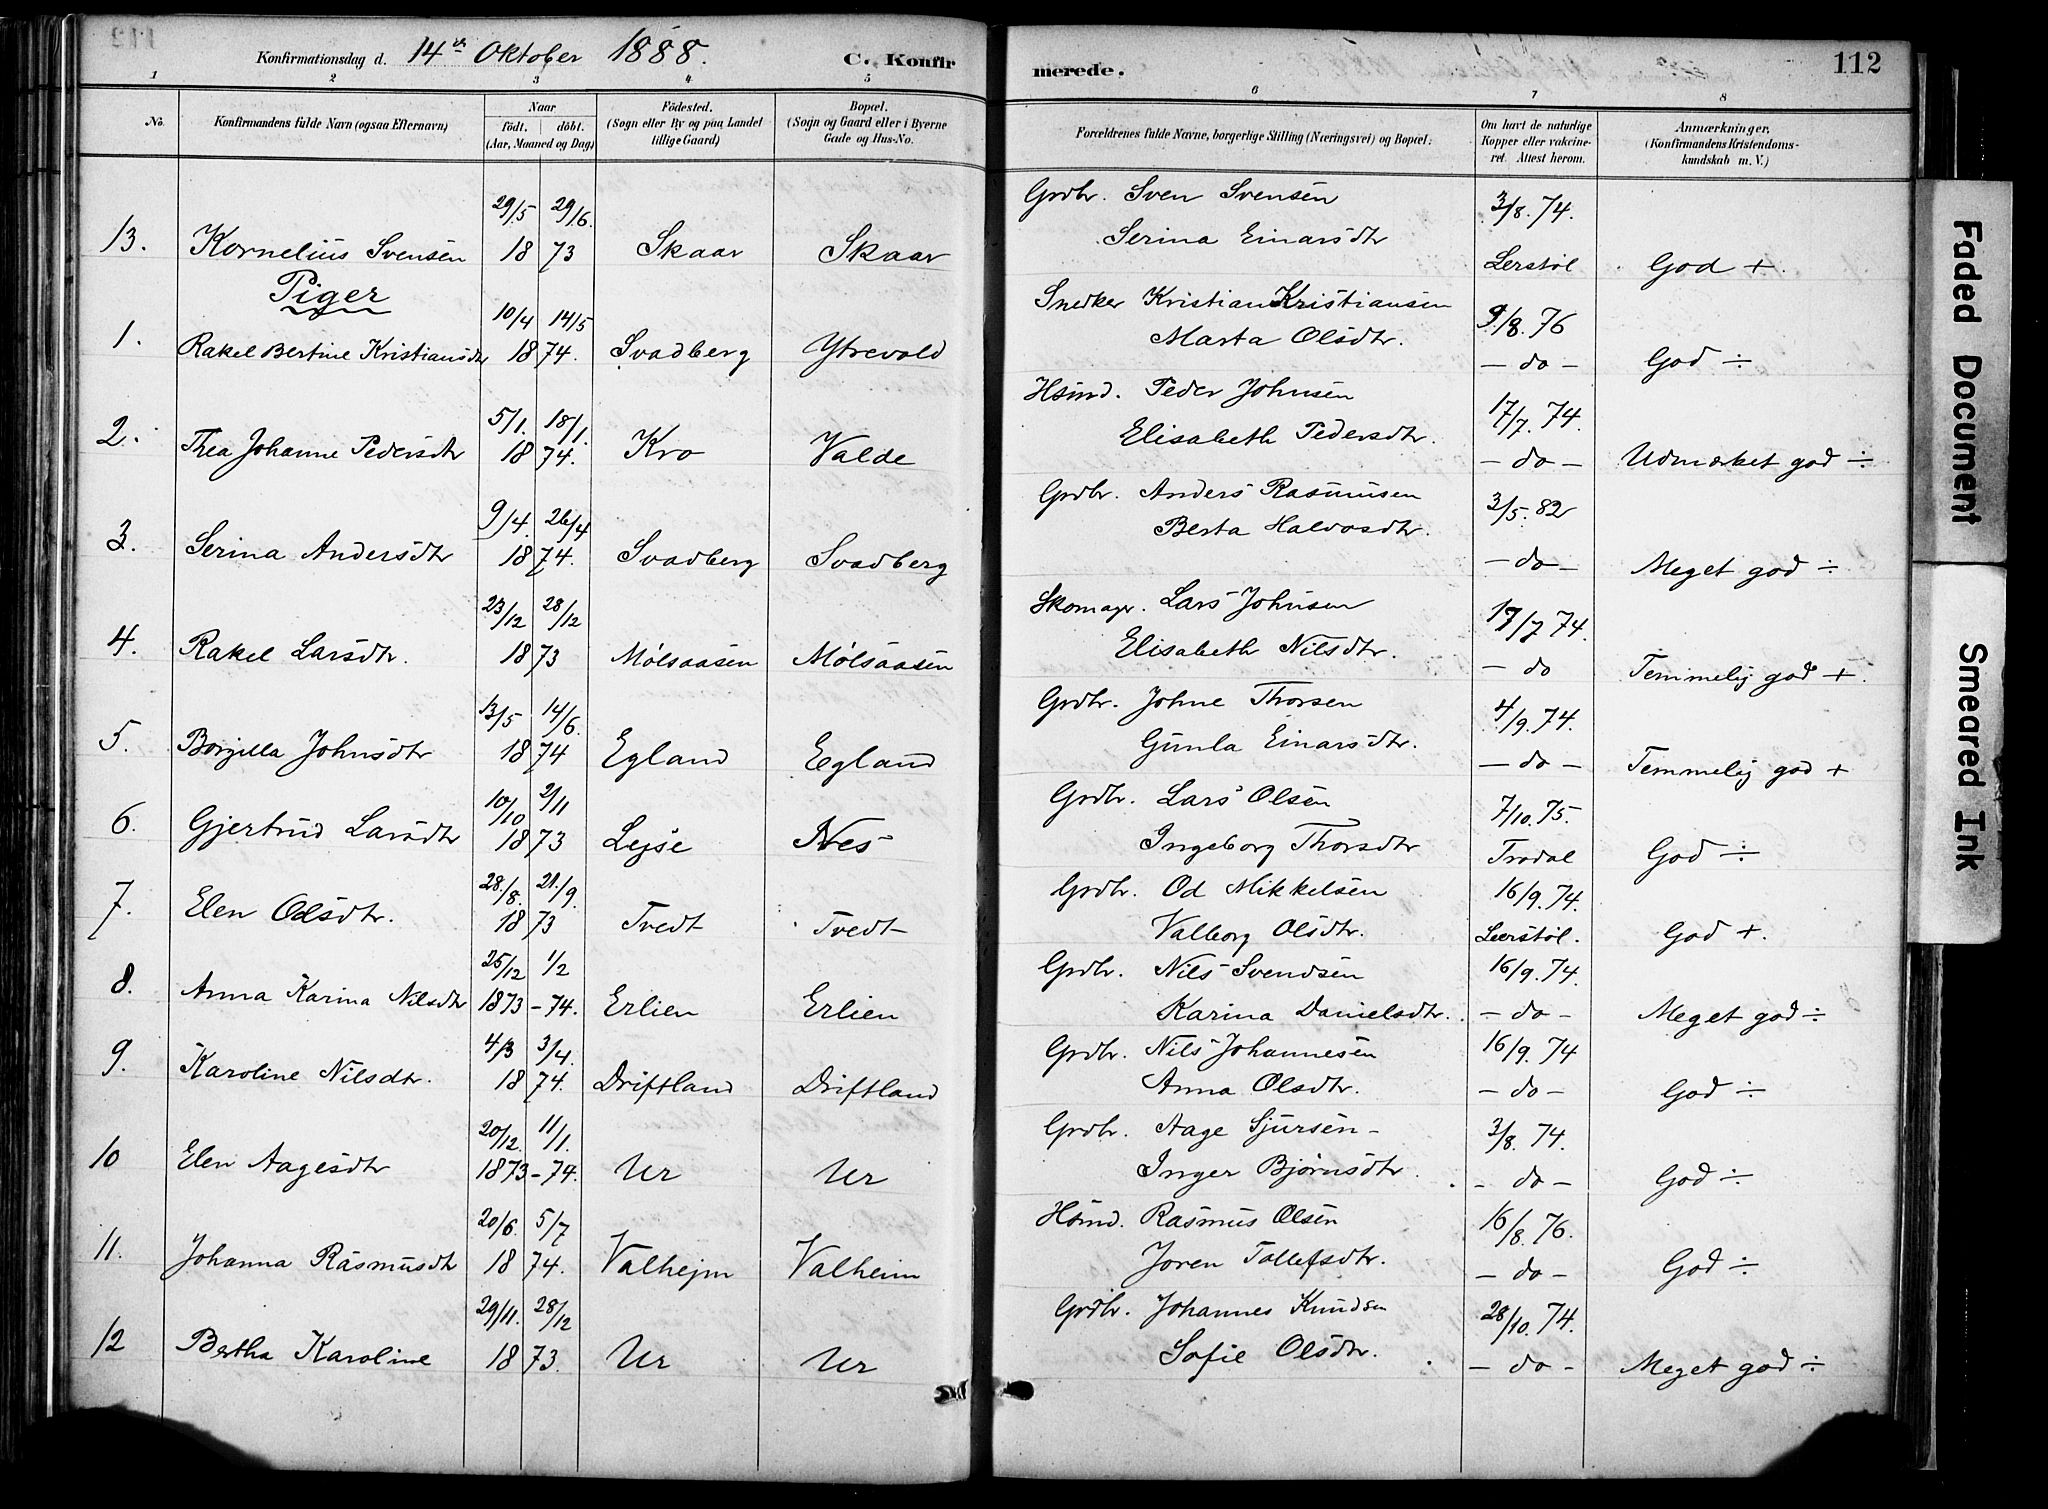 Konfirmationsdag d. 14de Oktober 1888. C. Konfirmerede. 112
1 2 3 4 5 6 7 8
No. Konfirmandens fulde Navn (ogsaa Efternavn) Naar födt. döbt. (Aar, Maaned og Dag) Födested. (Sogn eller By og paa Landet tillige Gaard) Bopæl. (Sogn og Gaard eller i Byerne Gade og Hus-No. Forældrenes fulde Navne, borgerlige Stilling (Næringsvei) og Bopæl. Om havt de naturlige Kopper eller vakcineret. Attest herom. Anmærkninger. (Konfirmandens Kristendomskundskab m. V.)
29/5 29/6. Grdbr. Sven Svensen 3/8. 74.
13. Kornelius Svensen 18 73 Skaar Skaar Serina Einarsdtr Lerstøl God +.
Piger
10/4 14/5 Snedker Kristian Kristiansen 9/8. 76
1. Rakel Bertine Kristiansdtr 18 74. Svadberg Ytrevold Marta Olsdtr. — do — God ÷
5/1. 18/1. Hsmd. Peder Johnsen 17/7. 74.
2. Thea Johanne Pedersdtr 18 74. Kro Valde Elisabeth Pedersdtr. — do — Udmærket god ÷
9/4. 26/4 Grdbr. Anders Rasmusen 3/5. 82
3. Serina Andersdtr 18 74. Svadberg Svadberg Berta Halvosdtr. — do — Meget god ÷
23/12 28/12 Skomager. Lars Johnsen 17/7 74.
4. Rakel Larsdtr. 18 73 Mølsaasen Mølsaasen Elisabeth Nilsdtr. — do Temmelig god +.
13/5 14/6. Grdbr. Johne Thorsen 4/9. 74.
5. Borgilla Johnsdtr 18 74 Egland Egland Gunla Einarsdtr. — do — Temmelig god +
10/10 2/11 Grdbr. Lars Olsen 7/10. 75.
6. Gjertrud Larsdtr 18 73 Lejse Nes Ingeborg Thorsdtr Trodal God ÷
28./8. 21./9. Grdbr. Od Mikkelsen 16/9. 74.
7. Elen Odsdtr. 18 73 Tvedt Tvedt Valborg Olsdtr. Leerstøl. God +.
25/12 1/2 Grdbr. Nils Svendsen 16/9. 74.
8. Anna Karina Nilsdtr 1873 - 74. Erlien Erlien Karina Danielsdtr. — do — Meget god ÷
4/3 3/4. Grdbr. Nils Johannesen 16/9. 74
9. Karoline Nilsdtr. 18 74. Driftland Driftland Anna Olsdtr. — do — God ÷
20/12. 11/1. Grdbr. Aage Sjursen - 3/8. 74.
10 Elen Aagesdtr 1873 - 74. Ur Ur Inger Bjørnsdtr. - do — God ÷
20/6. 5/7 Hsmd. Rasmus Olsen 16/8. 76.
11. Johanna Rasmusdtr 18 74. Valhejm Valheim Joren Tollefsdtr. — do — God ÷
29/11. 28/12 Grdbr. Johannes Knudsen 28/10. 74.
12 Bertha Karoline 18 73. Ur Ur Sofie Olsdtr. — do - Meget god ÷
Faded Document
Smeared Ink